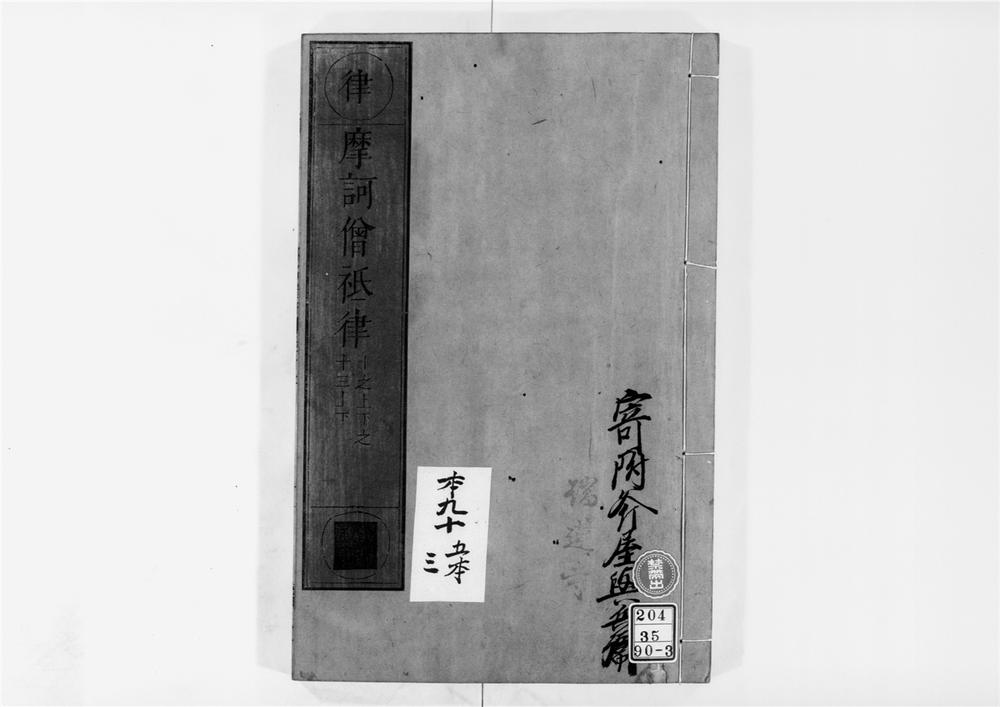 律
摩訶僧祇律
十之上下之
十三上下
本九十
五本
三
寄附斧屋與兵衛
禁帶出
204
35
90-3